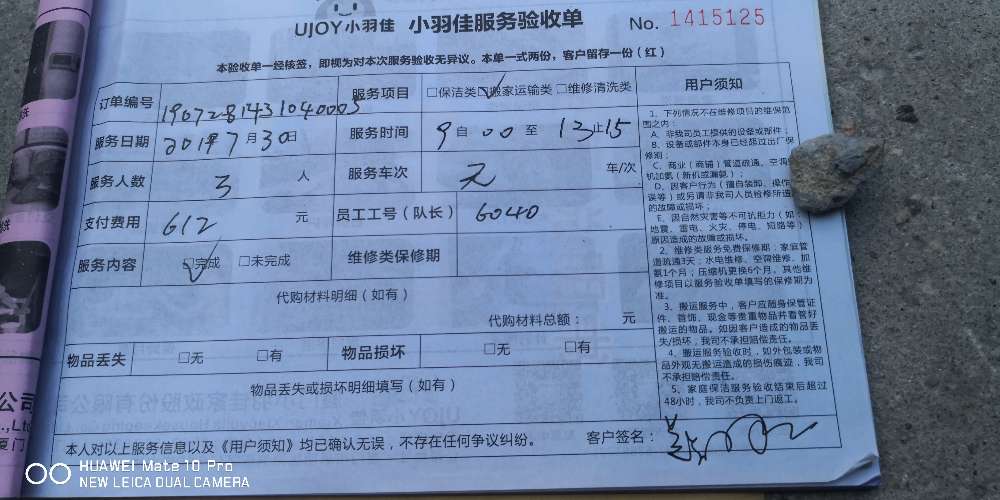 UJOY小羽佳 小羽佳服务验收单 No. 1415125
本验收单一经核签，即视为对本次服务验收无异议。本单一式两份，客户留存一份（红）
订单编号 1907281431040005 服务项目 □保洁类 □搬家运输类 □维修清洗类
服务日期 2019年7月30日 服务时间 9自00至13止15
服务人数 3 人 服务车次 无 车/次
支付费用 612 元 员工工号（队长） 6040
服务内容 □完成 □未完成 维修类保修期
代购材料明细（如有）
代购材料总额： 元
物品丢失 □无 □有 物品损坏 □无 □有
物品丢失或损坏明细填写（如有）
本人对以上服务信息以及《用户须知》均已确认无误，不存在任何争议纠纷。 客户签名：
用户须知
1、下列情况不在维修项目的维保范
围之内：
A、非我司员工提供的设备或部件；
B、设备或部件本身已经超过出厂保
修期；
C、商业（商铺）管道疏通、空调
机加氨（新机或漏氨）；
D、因客户行为（擅自装卸、操作
误等）或另请非我司人员检修所造
的故障或损坏；
E、因自然灾害等不可抗拒力（如：
地震、雷电、火灾、停电、短路等）
原因造成的故障或损坏。
2、维修类服务免费保修期：家庭管
道疏通3天；水电维修、空调维修、加
氨1个月；压缩机更换6个月，其他维
修项目以服务验收单填写的保修期为
准。
3、搬运服务中，客户应随身保管证
件、首饰、现金等贵重物品并看管好
搬运的物品。如因客户造成的物品丢
失/损坏，我司不承担赔偿责任。
4、搬运服务验收时，如外包装或物
品外观无搬运造成的损伤痕迹，我司
不承担赔偿责任。
5、家庭保洁服务验收结束后超过
48小时，我司不负责上门返工。
公司
.,Ltd
厦门
HUAWEI Mate 10 Pro
NEW LEICA DUAL CAMERA